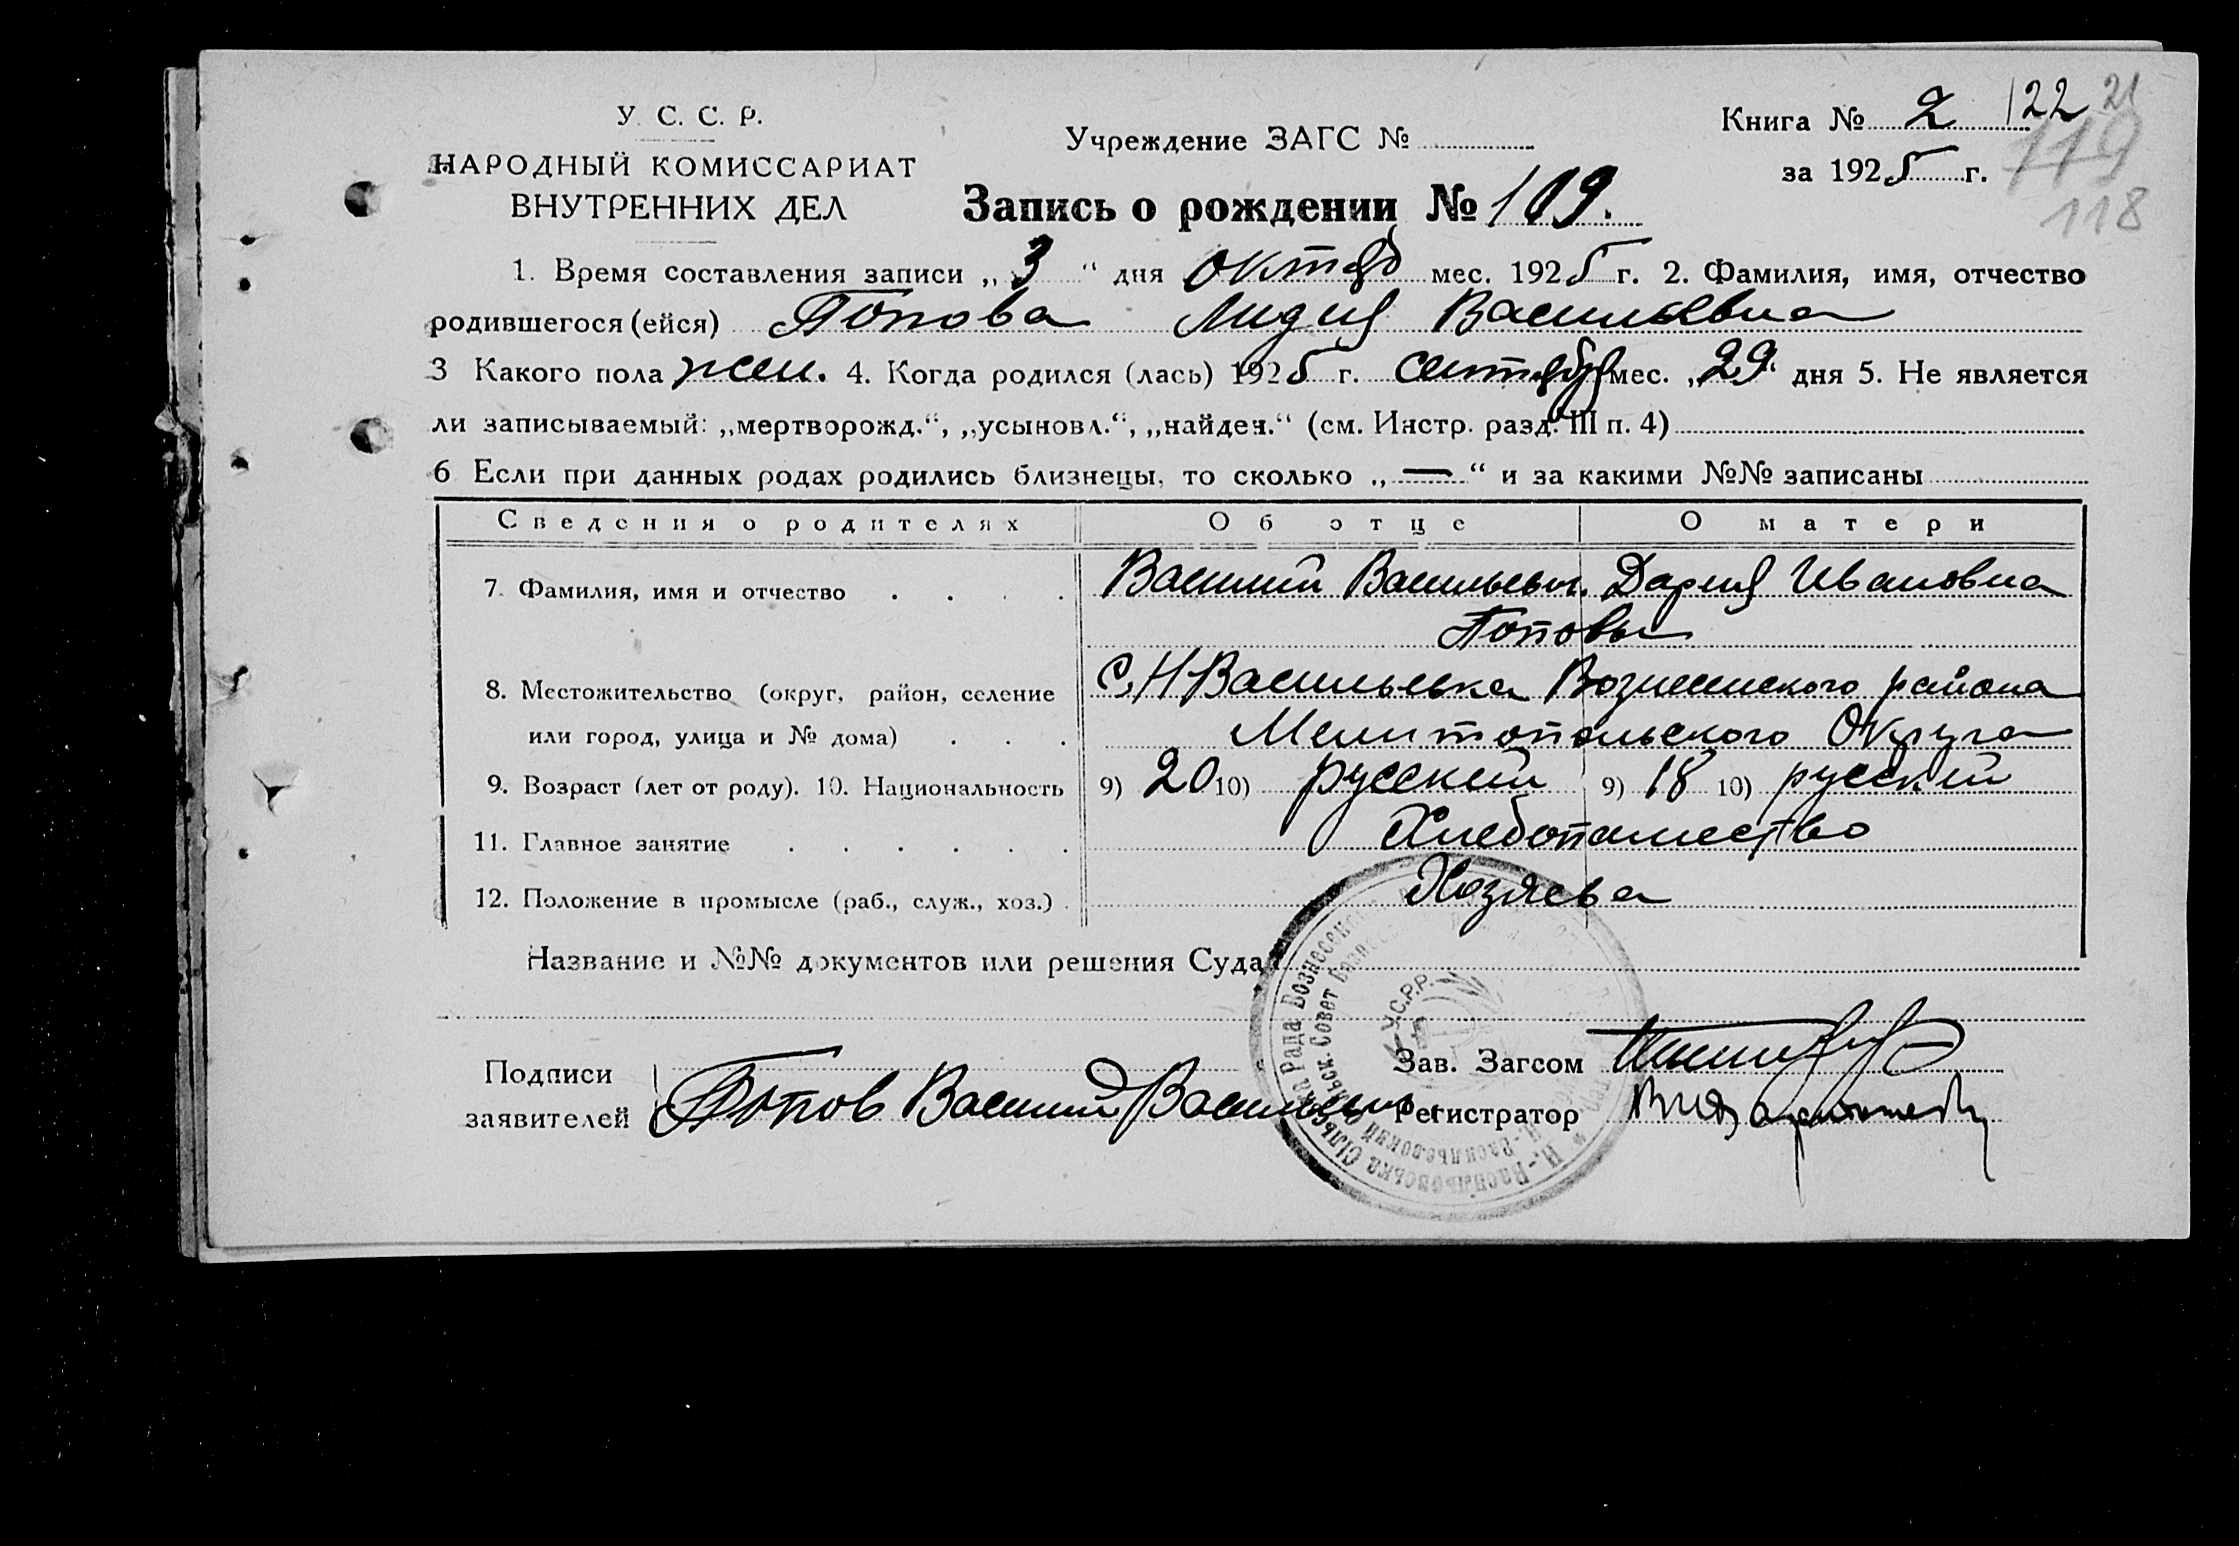 У. С. С. Р.
НАРОДНЫЙ КОМИССАРИАТ
ВНУТРЕННИХ ДЕЛ
Учреждение ЗАГС №
Книга № 2 122 21
за 1925 г. 119
118
Запись о рождении № 109.
1. Время составления записи „3“ дня октяб мес. 1925 г. 2. Фамилия, имя, отчество
родившегося (ейся) Попова Лидия Васильевна
3 Какого пола жен. 4. Когда родился (лась) 1925 г. сентября мес. „29“ дня 5. Не является
ли записываемый: „мертворожд.“, „усыновл.“, „найден.“ (см. Инстр. разд. III п. 4)
6 Если при данных родах родились близнецы, то сколько „—“ и за какими №№ записаны
Сведения о родителях Об отце О матери
7. Фамилия, имя и отчество Василий Васильевич. Дария Ивановна
Поповы
8. Местожительство (округ, район, селение С. Н Васильевка Вознесенского района
или город, улица и № дома) Мелитопольского Округа
9. Возраст (лет от роду). 10. Национальность 9) 20 10) русский 9) 18 10) русский
11. Главное занятие Хлебопашество
12. Положение в промысле (раб., служ., хоз.) Хозяева
Название и №№ документов или решения Суда
У.С.Р.Р.
Подписи
заявителей Попов Василий Васильевич
Зав. Загсом
Регистратор